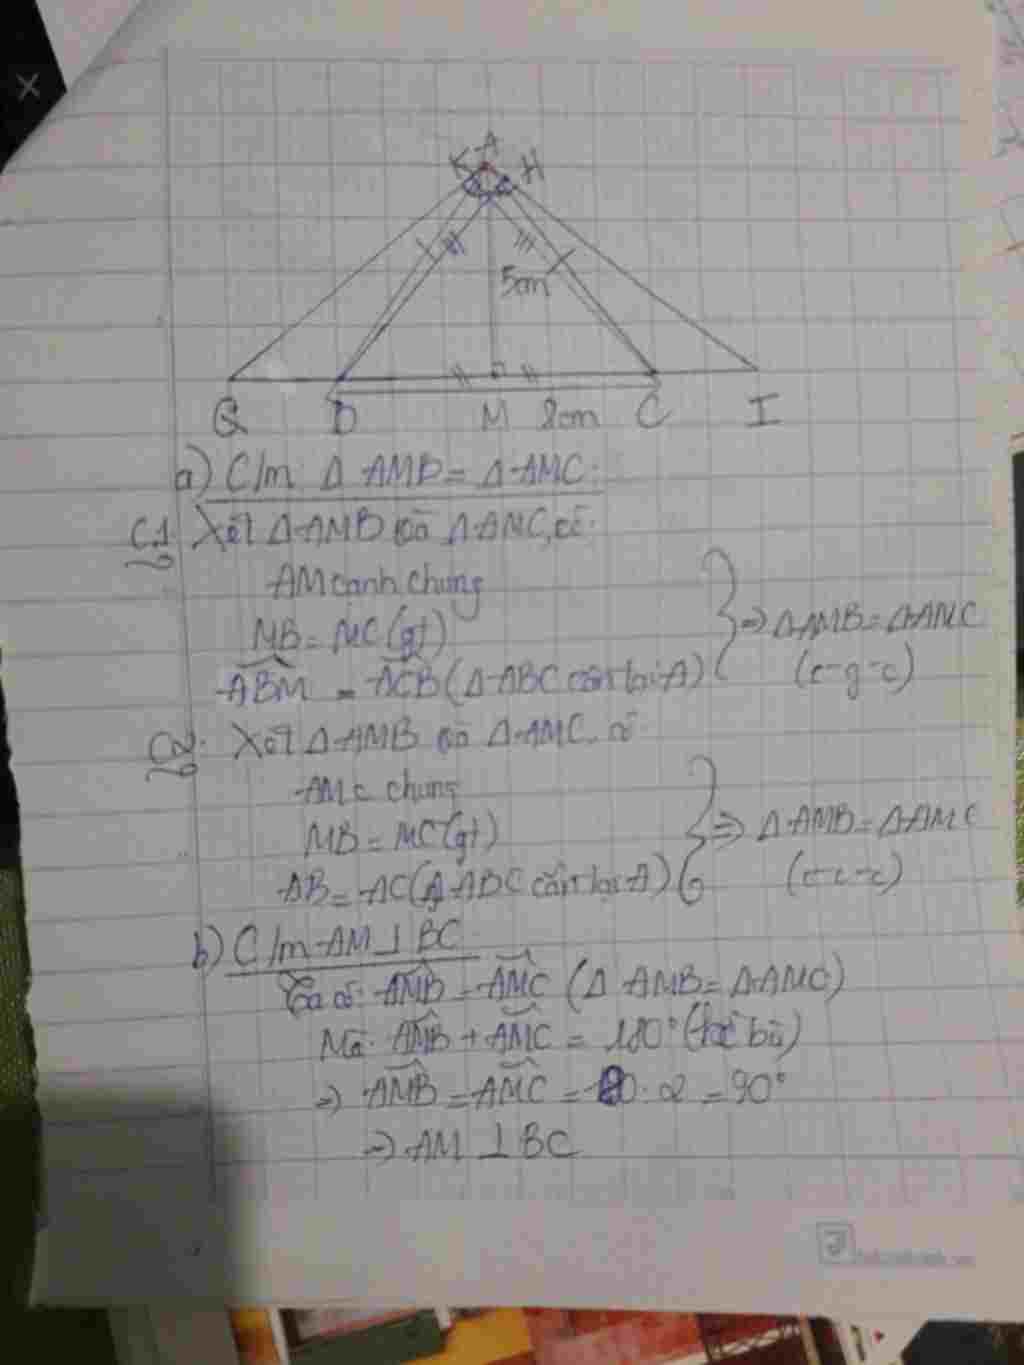 A
K H
5cm
Q B M 8cm C I
a) C/m Δ AMB = Δ AMC.
C1 Xét ΔAMB và ΔAMC, có:
AM cạnh chung
MB = MC (gt)
ABM = ACB (ΔABC cân tại A)
⇒ ΔAMB = ΔAMC
(c-g-c)
C2. Xét ΔAMB và ΔAMC, có
AM c chung
MB = MC (gt)
AB = AC (ΔABC cân tại A)
⇒ ΔAMB = ΔAMC
(c-c-c)
b) C/m AM ⊥ BC
Ta có: AMB = AMC (Δ AMB = ΔAMC)
Mà: AMB + AMC = 180° (kề bù)
⇒ AMB = AMC = : 2 = 90°
⇒ AM ⊥ BC